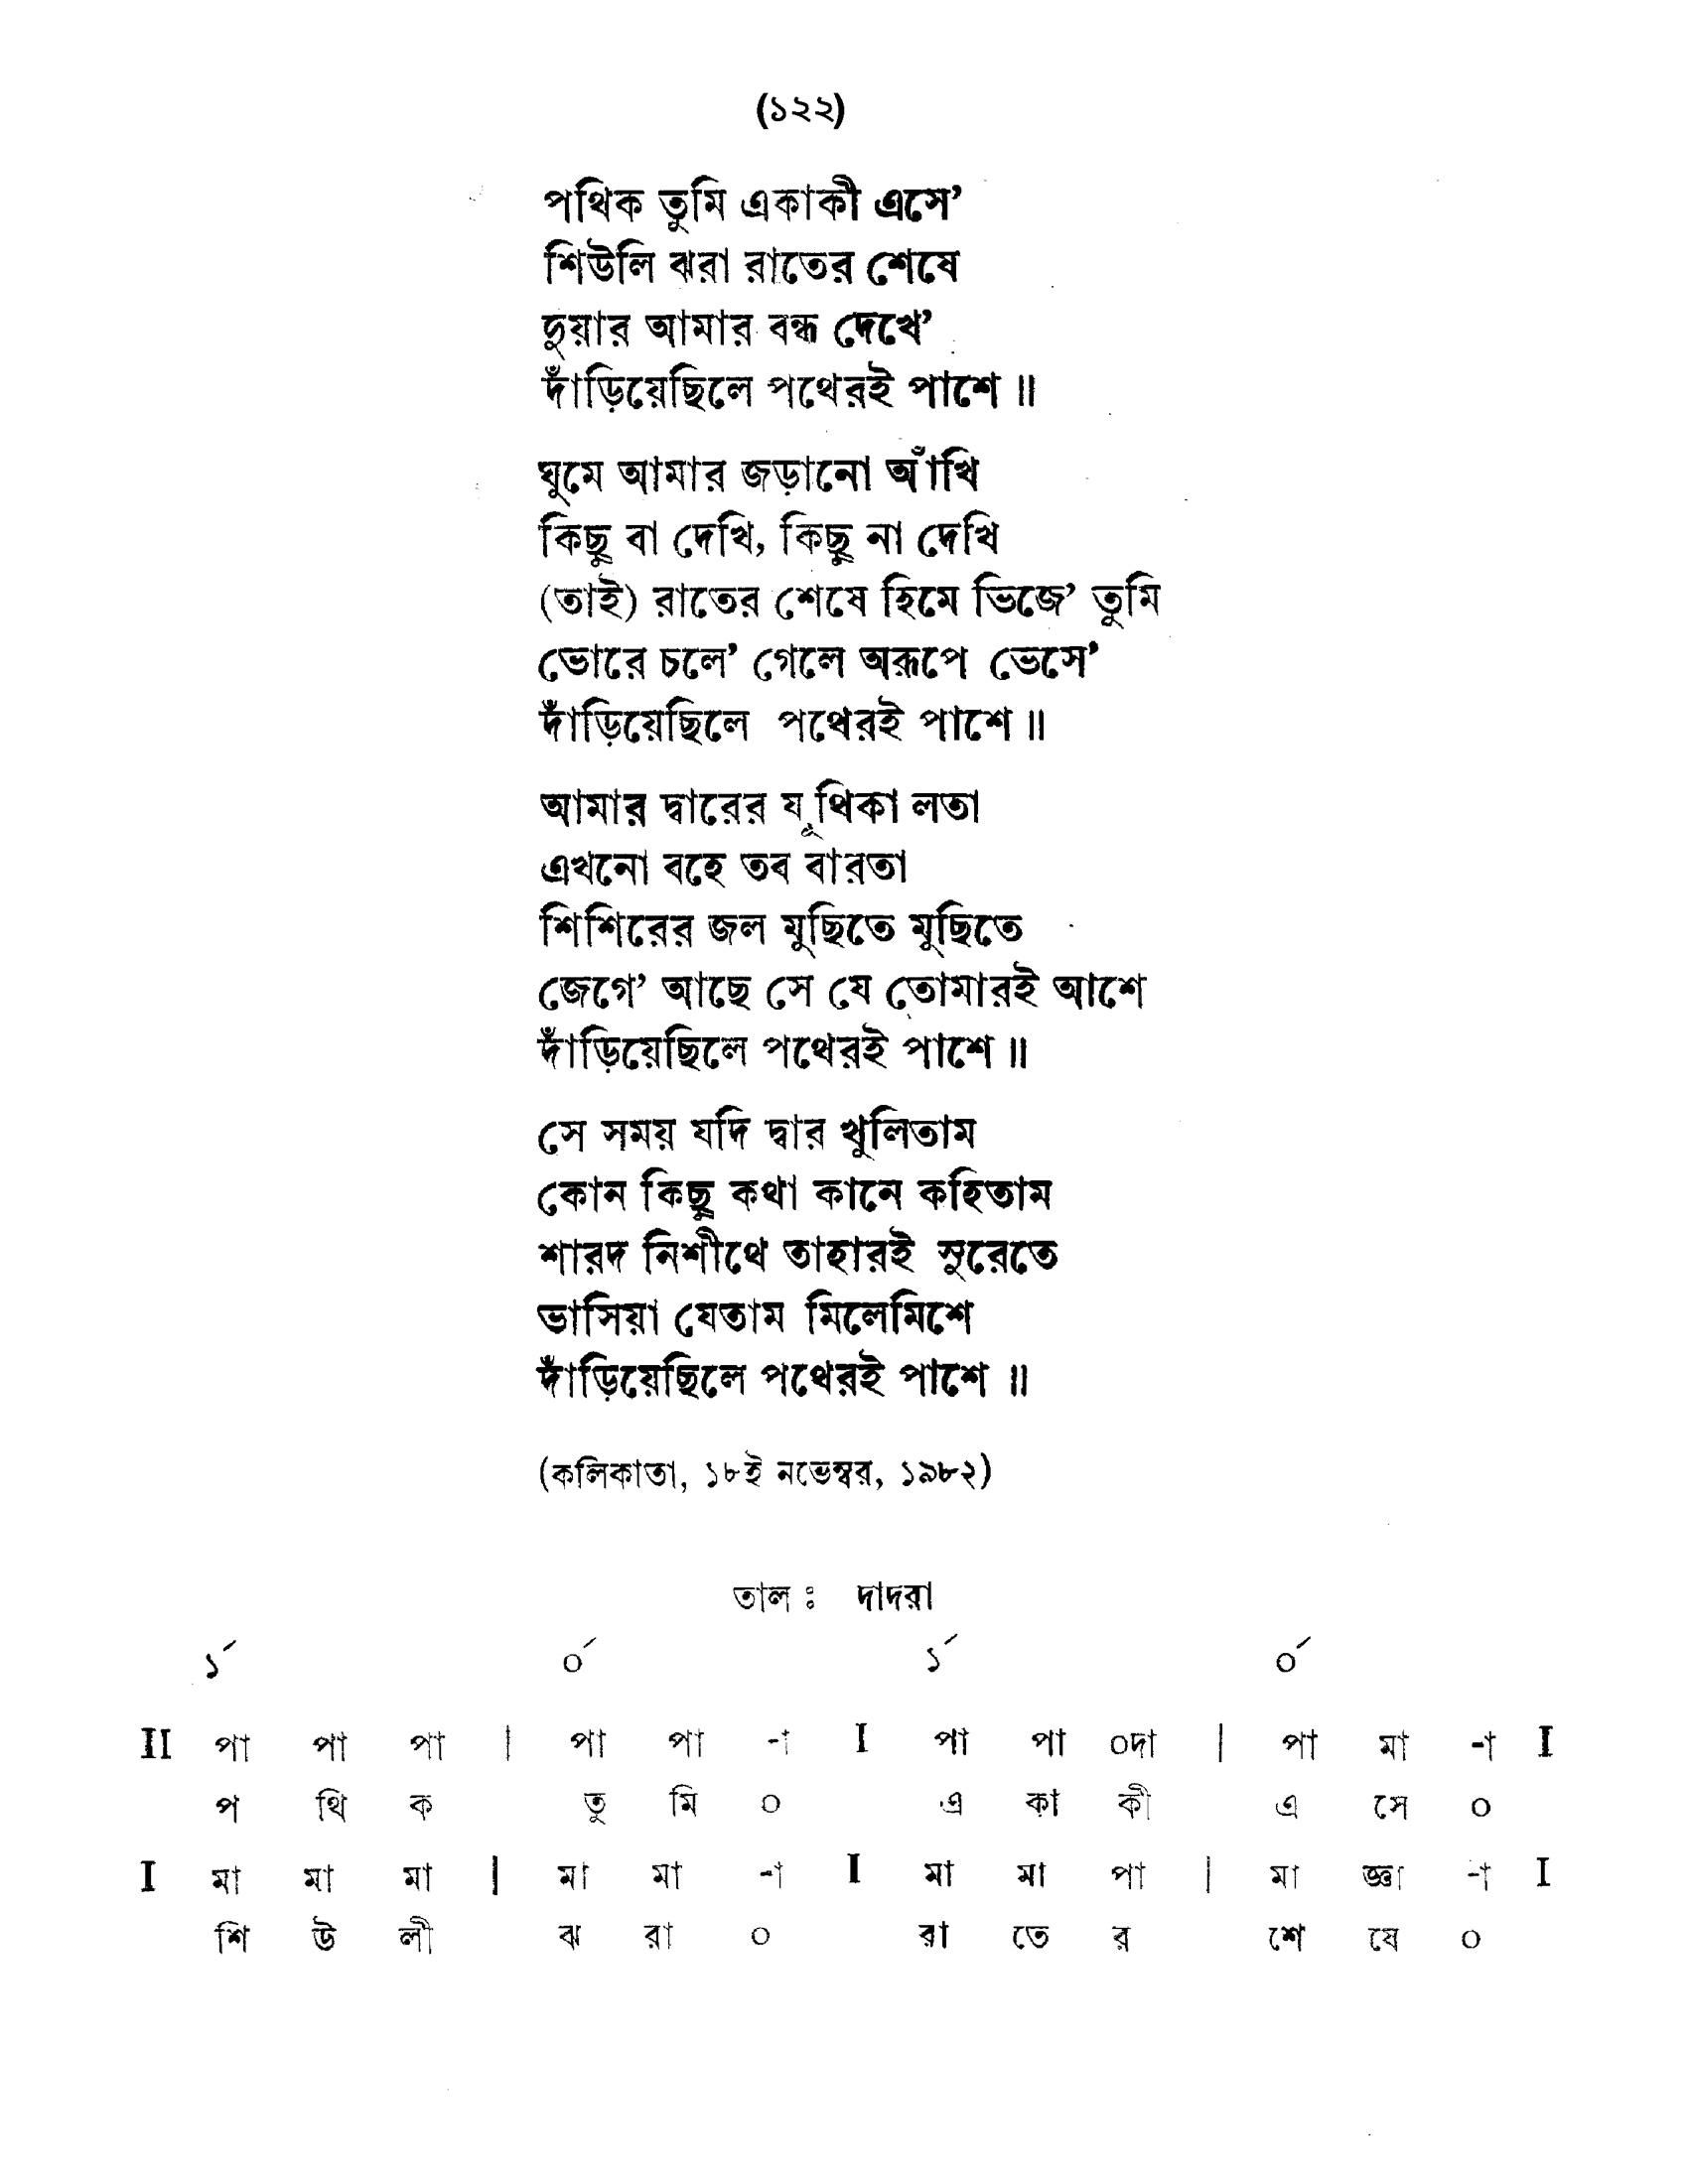 (১২২)
পথিক তুমি একাকী এসে’
শিউলি ঝরা রাতের শেষে
দুয়ার আমার বন্ধ দেখে’
দাঁড়িয়েছিলে পথেরই পাশে ॥
ঘুমে আমার জড়ানো আঁখি
কিছু বা দেখি, কিছু না দেখি
(তাই) রাতের শেষে হিমে ভিজে’ তুমি
ভোরে চলে’ গেলে অরূপে ভেসে’
দাঁড়িয়েছিলে পথেরই পাশে ॥
আমার দ্বারের যূথিকা লতা
এখনো বহে তব বারতা
শিশিরের জল মুছিতে মুছিতে
জেগে’ আছে সে যে তোমারই আশে
দাঁড়িয়েছিলে পথেরই পাশে ॥
সে সময় যদি দ্বার খুলিতাম
কোন কিছু কথা কানে কহিতাম
শারদ নিশীথে তাহারই সুরেতে
ভাসিয়া যেতাম মিলেমিশে
দাঁড়িয়েছিলে পথেরই পাশে ॥
(কলিকাতা, ১৮ই নভেম্বর, ১৯৮২)
তাল ঃ দাদরা
১´ ০´ ১´ ০´
II পা পা পা | পা পা -া I পা পা ০দা | পা মা -া I
প থি ক তু মি ০ এ কা কী এ সে ০
I মা মা মা | মা মা -া I মা মা পা | মা জ্ঞা -া I
শি উ লী ঝ রা ০ রা তে র শে ষে ০